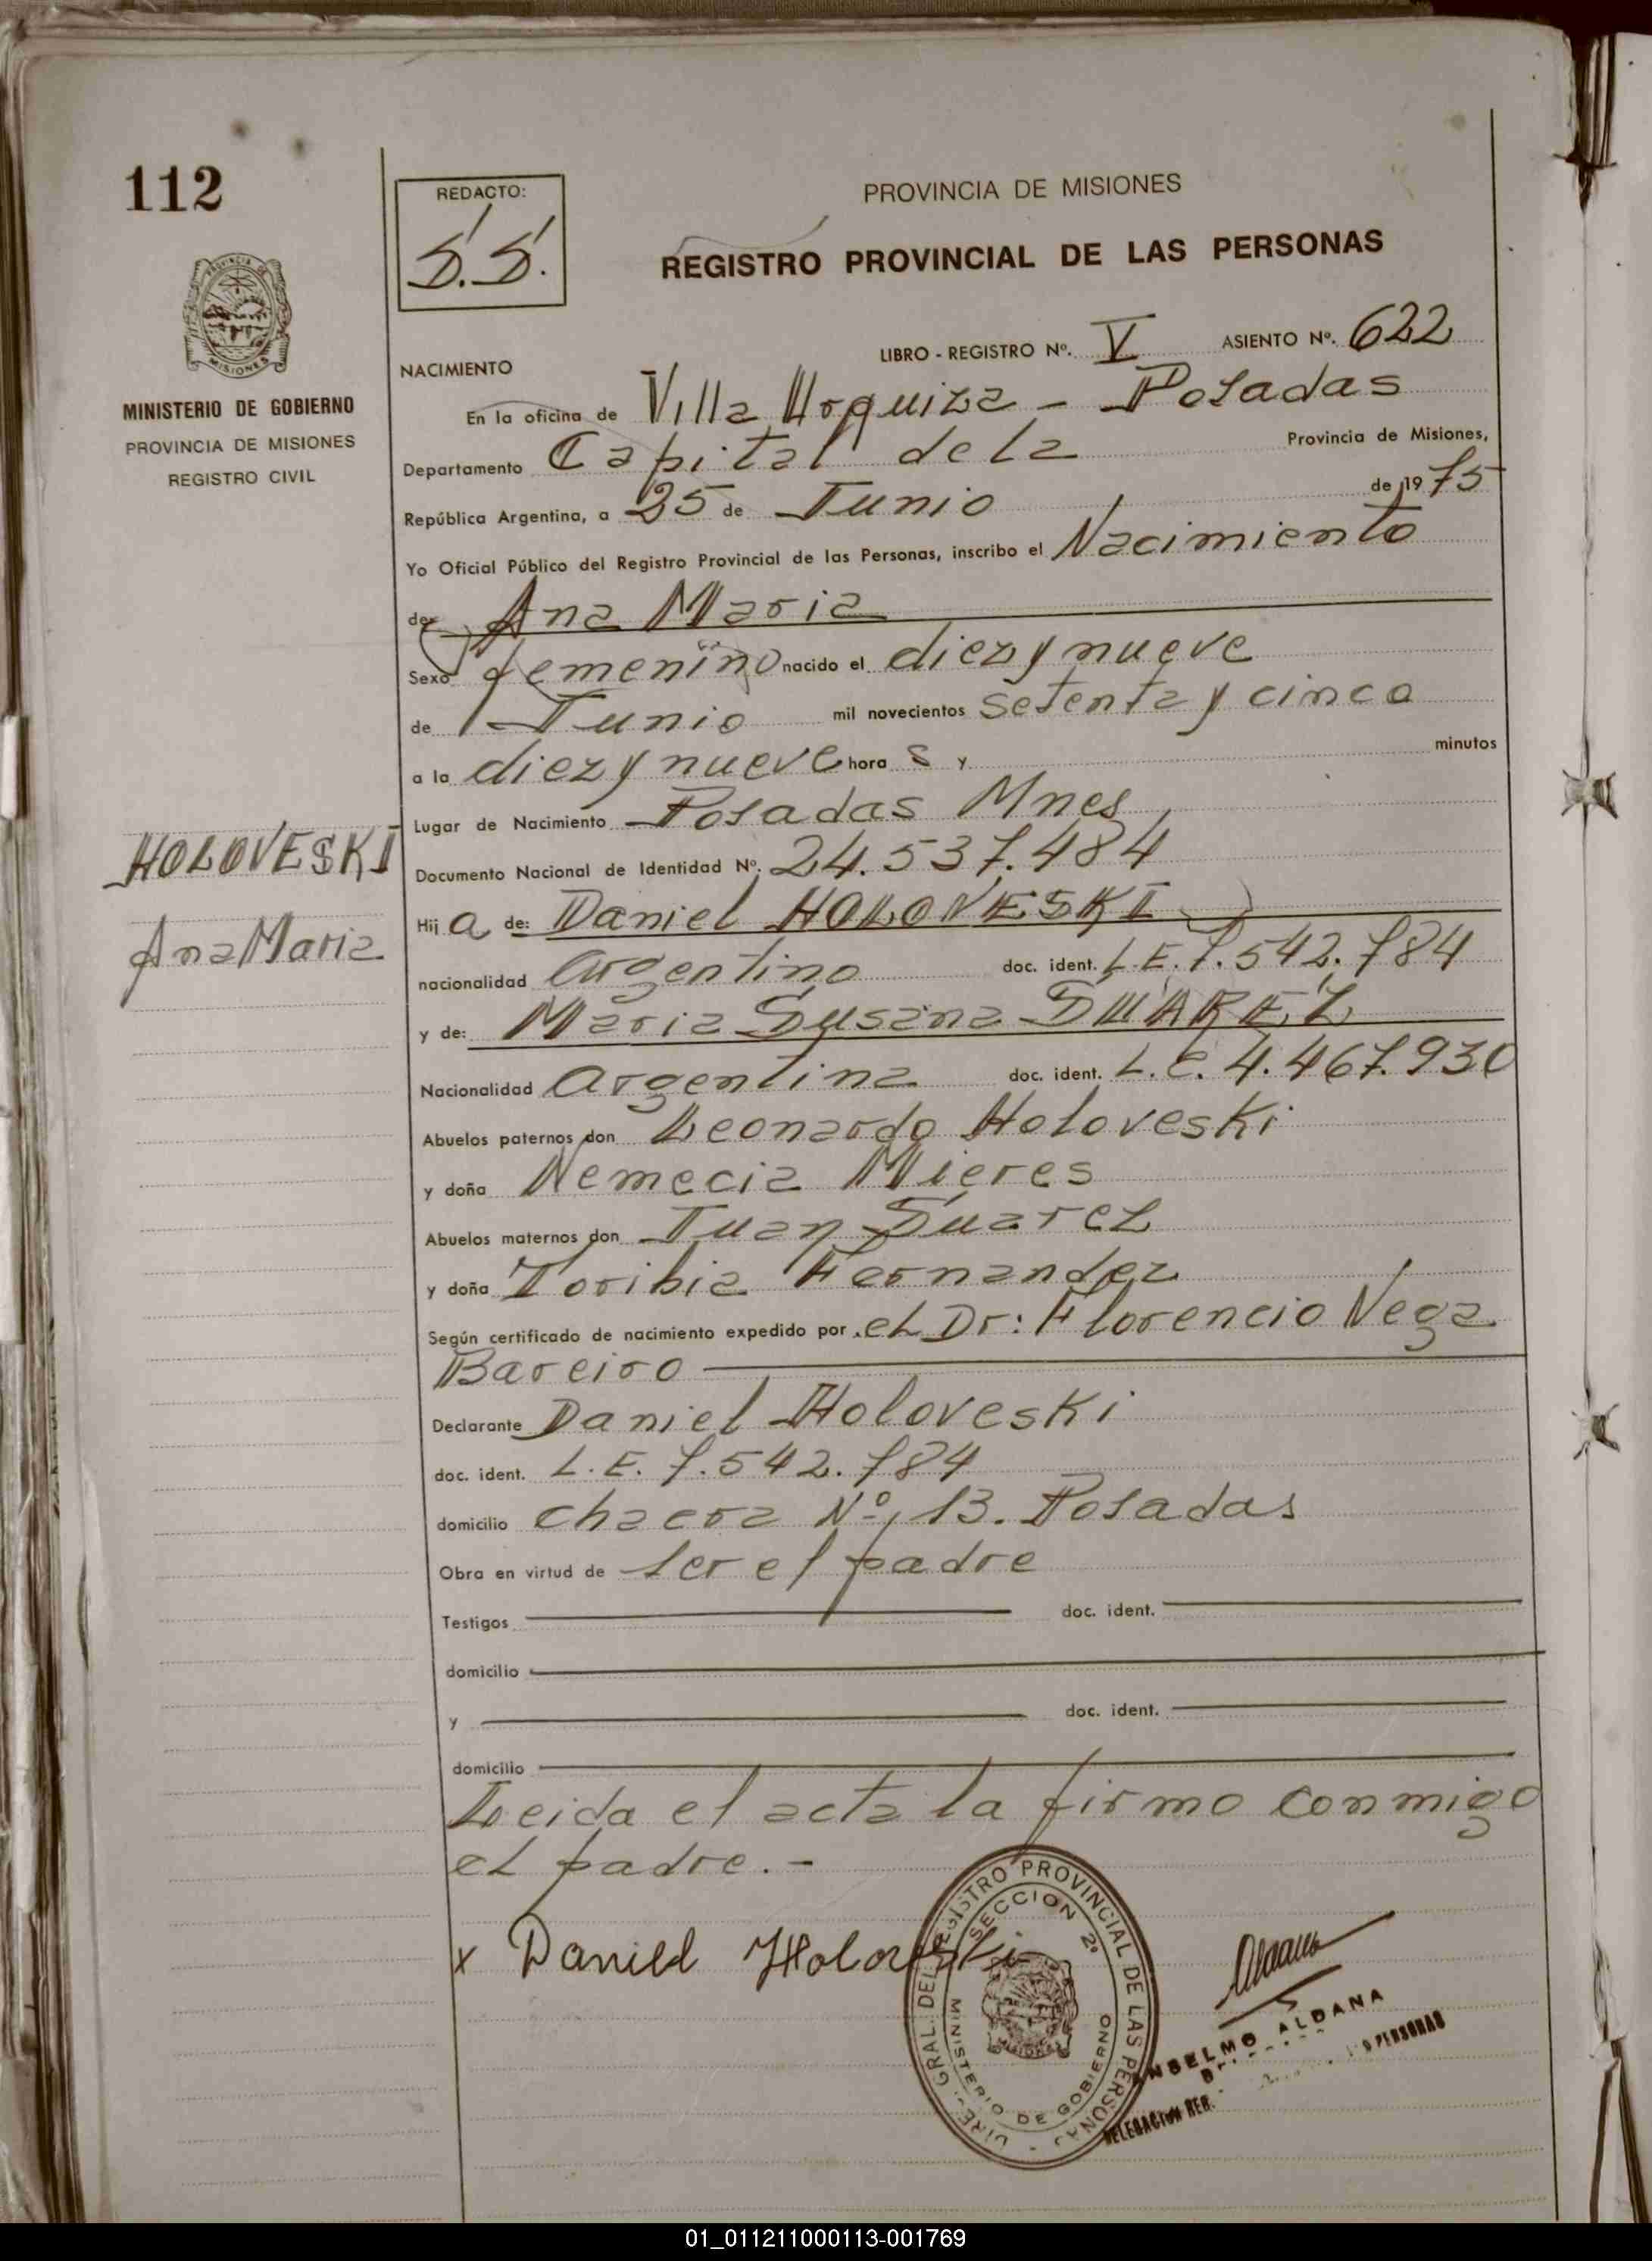 112
REDACTO:
S.S.
PROVINCIA DE MISIONES
REGISTRO PROVINCIAL DE LAS PERSONAS
PROVINCIA DE MISIONES
MINISTERIO DE GOBIERNO
PROVINCIA DE MISIONES
REGISTRO CIVIL
NACIMIENTO LIBRO - REGISTRO Nº. V ASIENTO Nº. 622
En la oficina de Villa Urquiza - Posadas
Departamento Capital de la Provincia de Misiones,
República Argentina, a 25 de Junio de 1975
Yo Oficial Público del Registro Provincial de las Personas, inscribo el Nacimiento
de: Ana Maria
Sexo femenino nacido el diez y nueve
de Junio mil novecientos setenta y cinco
a la diez y nueve hora s y minutos
Lugar de Nacimiento Posadas Mnes
HOLOVESKI
Ana Maria
Documento Nacional de Identidad Nº. 24.537.484
Hij a de: Daniel HOLOVESKI
nacionalidad argentino doc. ident. L.E. 7.542.784
y de: Maria Susana SUAREZ
Nacionalidad argentina doc. ident. L.C. 4.467.930
Abuelos paternos don Leonardo Holoveski
y doña Nemecia Mieres
Abuelos maternos don Juan Suarez
y doña Toribia Fernandez
Según certificado de nacimiento expedido por el Dr: Florencio Vega
Bareiro
Declarante Daniel Holoveski
doc. ident. L.E. 7.542.784
domicilio chacra Nº 13. Posadas
Obra en virtud de ser el padre
Testigos doc. ident.
domicilio
y doc. ident.
domicilio
Leida el acta la firmo conmigo
el padre.-
x Daniel Holoveski
DIRE. GRAL. DEL REGISTRO PROVINCIAL DE LAS PERSONAS
SECCION 2ª
MINISTERIO DE GOBIERNO
MISIONES
ANSELMO ALDANA
DELEGACION REG. PERSONAS
01_011211000113-001769